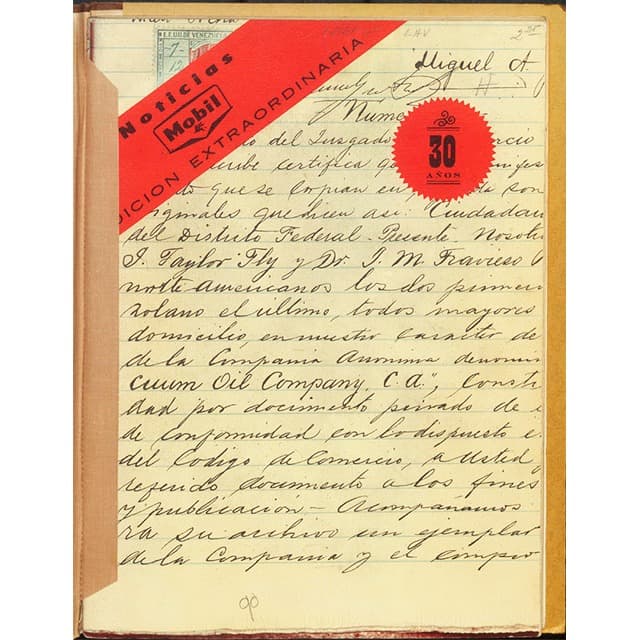 E.E.U.U. DE VENEZUELA
Noticias
Mobil
EDICION EXTRAORDINARIA
Miguel A
30
AÑOS
del Juzgado
certifica
que se copian en son
originales que dicen así: "Ciudadan
del Distrito Federal. Presente. Nosotr
J. Taylor Fly y Dr. J. M. Travieso
norte-americanos los dos primero
zolano el último, todos mayores
domicilio, en nuestro caracter de
de la Compania Anonima denomin
cuum Oil Company, C.A.", Consti
dad por documento privado de
de conformidad con lo dispuesto e
del Codigo de Comercio, a Usted
referido documento a los fines
y publicación - Acompañamos
ra su archivo un ejemplar
de la Compania y el compro
90